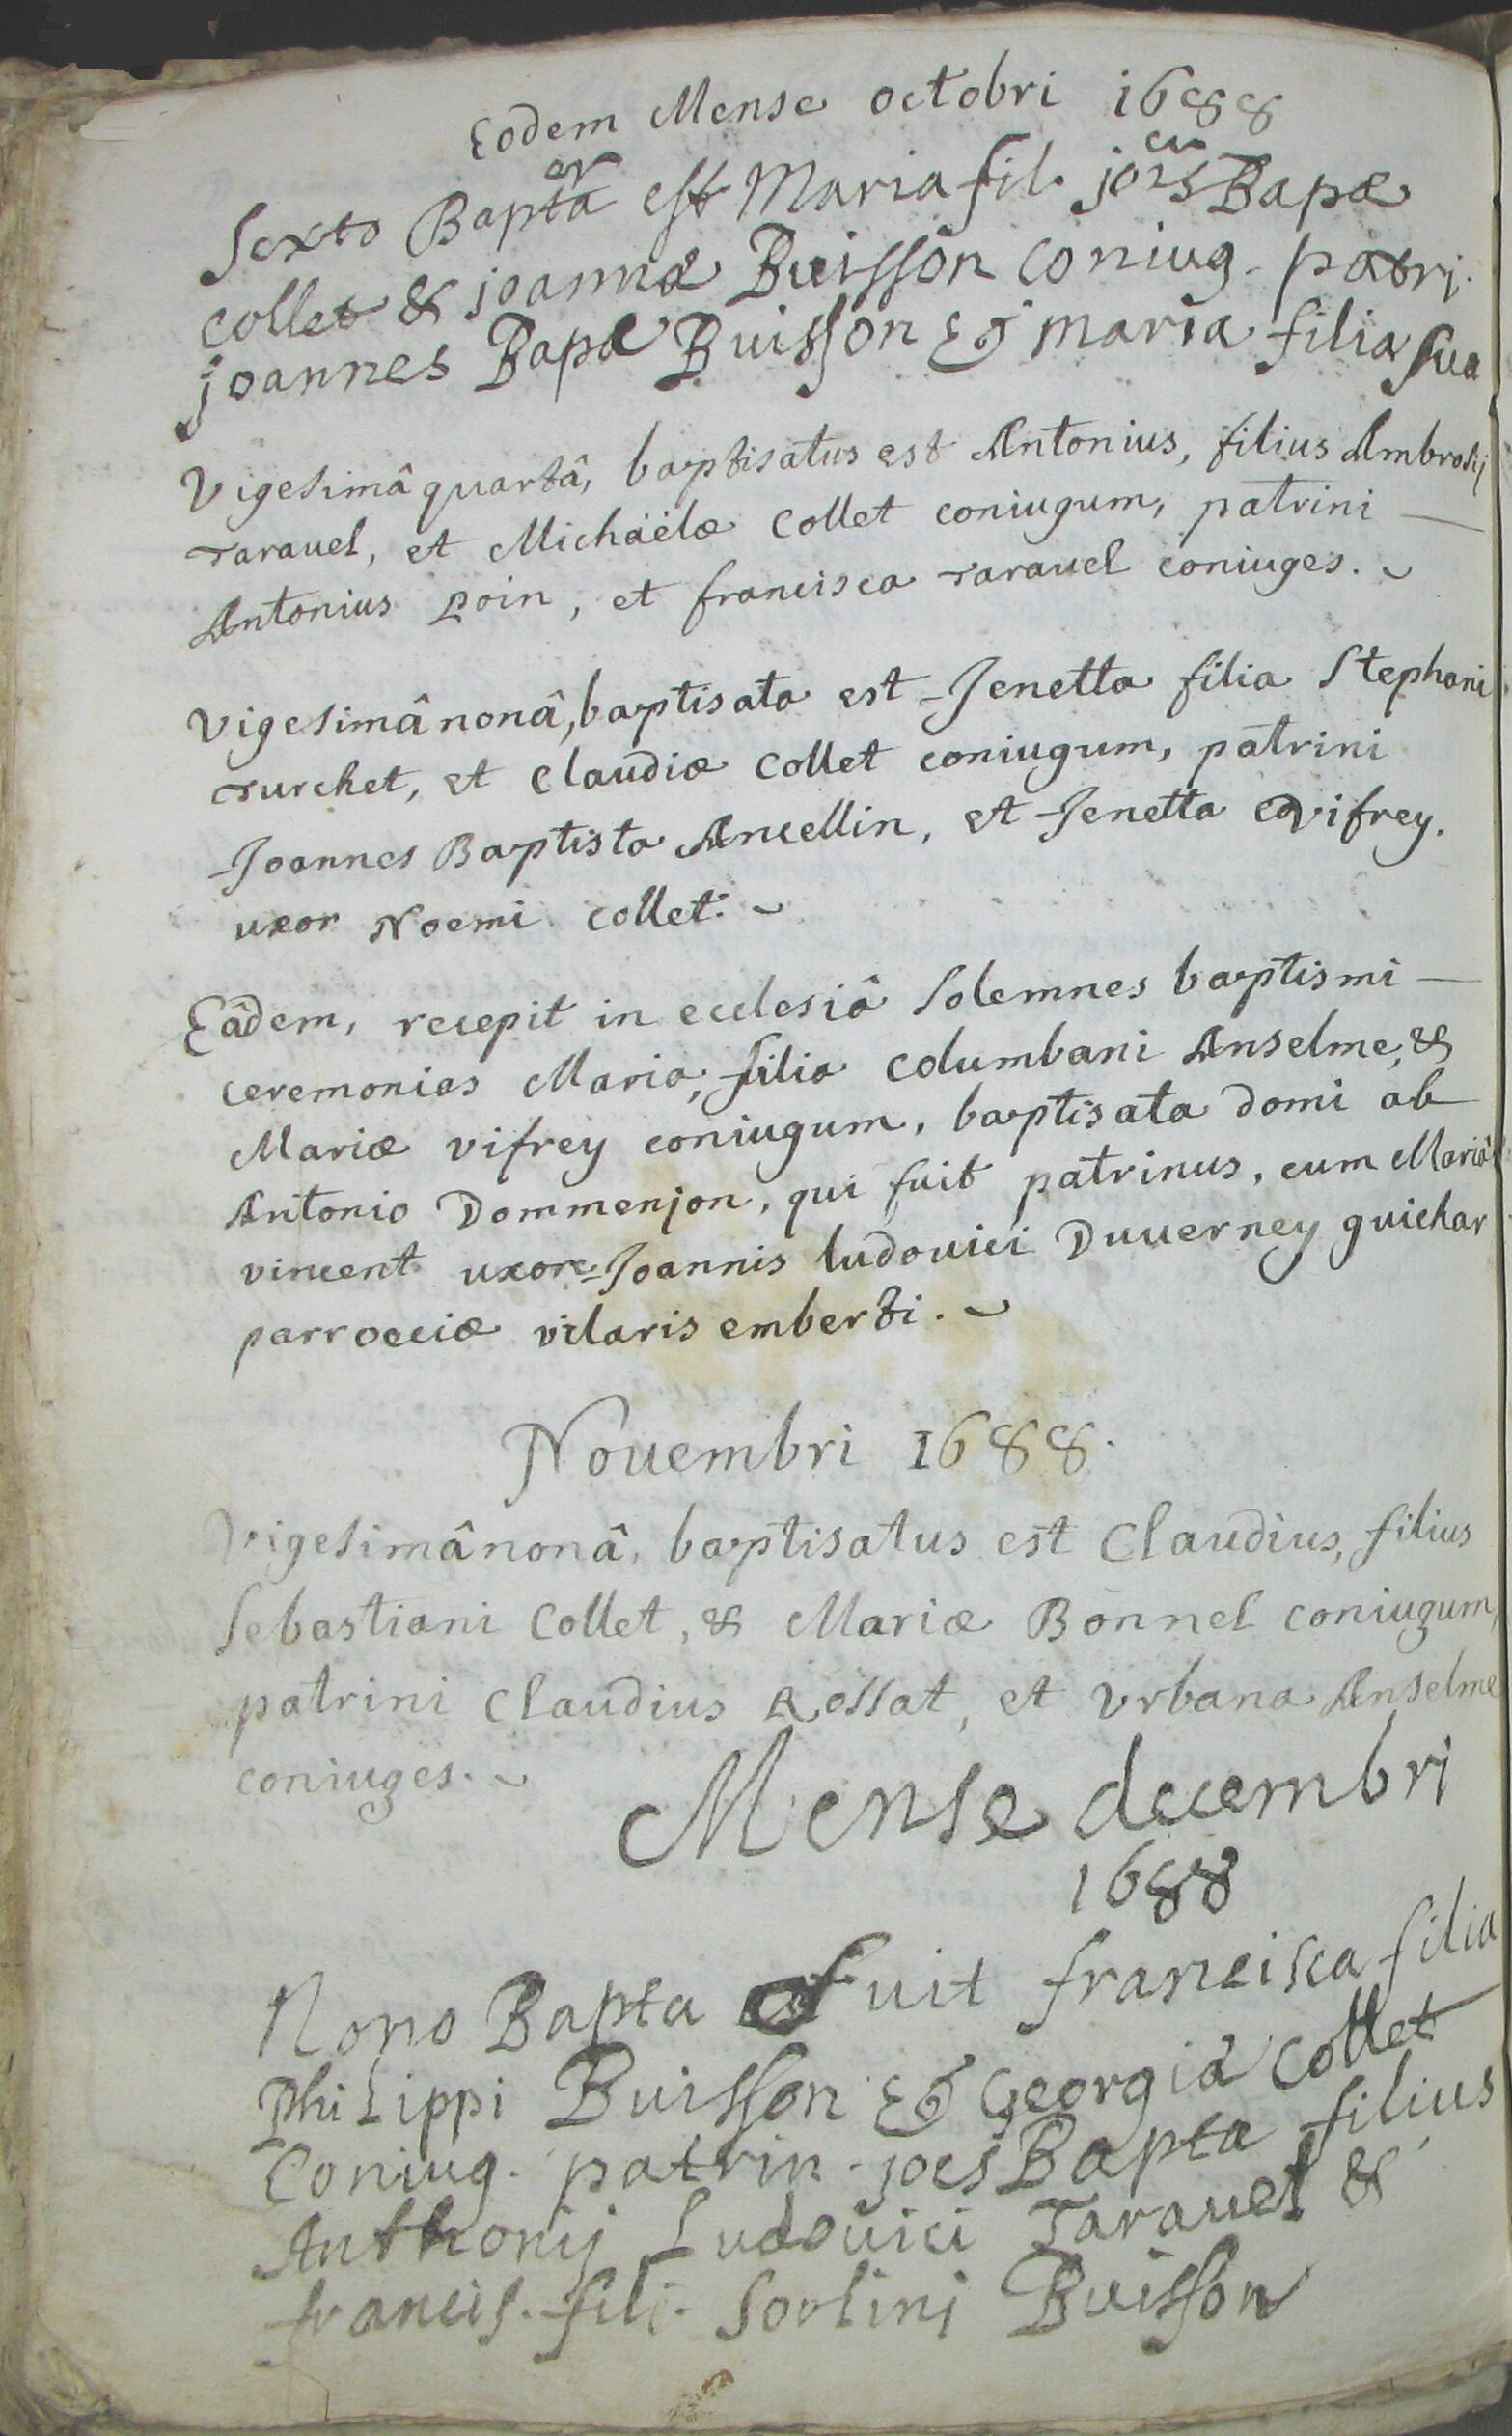 Eodem Mense octobri 1688
Sexto Bapta est Maria fil. jois Bapæ
collet & joannæ Buisson coniug. patri.
joannes Bapa Buisson & maria filia sua
Vigesimâ quartâ, baptisatus est Antonius, filius Ambrosij
Tarauel, et Michaëlæ Collet coniugum, patrini —
Antonius Poin, et francisca Tarauel coniuges.
Vigesimâ nonâ, baptisata est Jenetta filia Stephani
Turchet, et Claudiæ Collet coniugum, patrini
Joannes Baptista Ancellin, et Jenetta Vifrey.
uxor Noemi Collet.
Eâdem, recepit in ecclesiâ Solemnes baptismi —
ceremonias Maria, filia Columbani Anselme, &
Mariæ vifrey coniugum, baptisata domi ab
Antonio Dommenjon, qui fuit patrinus, cum Mariâ
vincent uxore Joannis ludouici Duuerney guichar
parrocciæ vilaris emberti.
Nouembri 1688.
Vigesimâ nonâ, baptisatus est Claudius, filius
Sebastiani Collet, & Mariæ Bonnel coniugum,
patrini Claudius Rossat, et Vrbana Anselme
coniuges.
Mense decembri
1688
Nono Bapta fuit francisca filia
Philippi Buisson & Georgia Collet
Coniug. patrin. joes Bapta filius
Anthonij Ludouici Tarauel &
francis. fili. Sorlini Buisson